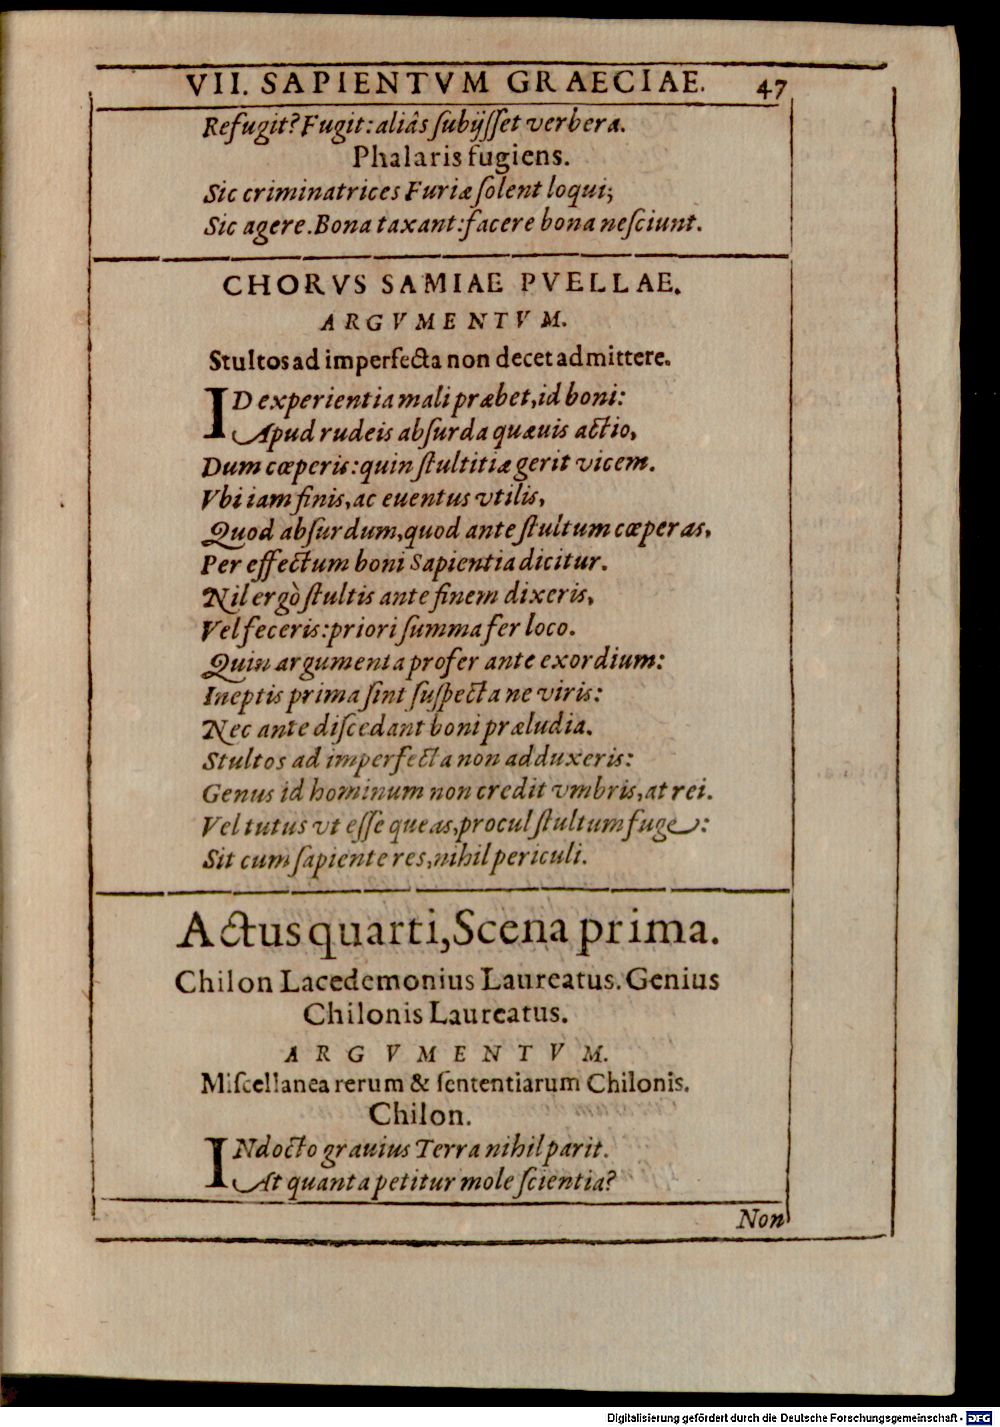 VII. SAPIENTVM GRAECIAE. 47
Refugit? Fugit: aliàs ſubijſſet verbera.
Phalaris fugiens.
Sic criminatrices Furiæ ſolent loqui;
Sic agere. Bona taxant: facere bona neſciunt.
CHORVS SAMIAE PVELLAE.
ARGVMENTVM.
Stultos ad imperfecta non decet admittere.
ID experientia mali præbet, id boni:
Apud rudeis abſurda quæuis actio,
Dum cœperis: quin ſtultitiæ gerit vicem.
Vbi iam finis, ac euentus vtilis,
Quod abſurdum, quod ante ſtultum cœperas,
Per effectum boni Sapientia dicitur.
Nil ergò ſtultis ante finem dixeris,
Vel feceris: priori ſumma fer loco.
Quin argumenta profer ante exordium:
Ineptis prima ſint ſuſpecta ne viris:
Nec ante diſcedant boni præludia.
Stultos ad imperfecta non adduxeris:
Genus id hominum non credit vmbris, at rei.
Vel tutus vt eſſe queas, procul ſtultum fuge:
Sit cum ſapiente res, nihil periculi.
Actus quarti, Scena prima.
Chilon Lacedemonius Laureatus. Genius
Chilonis Laureatus.
ARGVMENTVM.
Miſcellanea rerum & ſententiarum Chilonis.
Chilon.
INdocto grauius Terra nihil parit.
At quanta petitur mole ſcientia?
Non
Digitalisierung gefördert durch die Deutsche Forschungsgemeinschaft - DFG